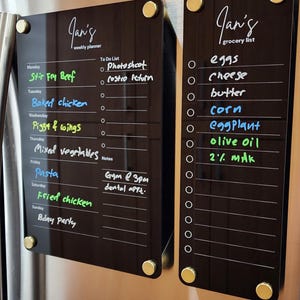 Jan's
weekly planner
To Do List
Monday
Photoshoot
Stir Fry Beef
Costco return
Tuesday
Baked chicken
Wednesday
Pizza & wings
Thursday
Mixed vegetables
Notes
Friday
Pasta
Gym @ 3pm
dental appt.
Saturday
Fried chicken
Sunday
Bday party
Jan's
grocery list
eggs
cheese
butter
corn
eggplant
olive oil
2% milk